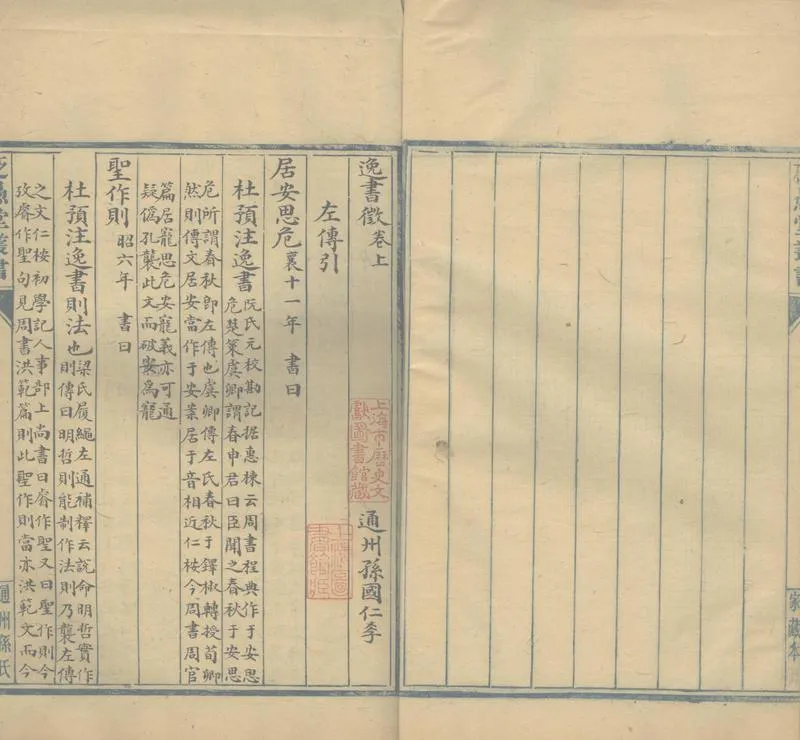 家藏本
逸書徵 卷上
通州孫國仁李
左傳引
居安思危 襄十一年 書曰
杜預注逸書
阮氏元校勘記据惠棟云周書程典作于安思
危楚策虞卿謂春申君曰臣聞之春秋于安思
危所謂春秋即左傳也虞卿傳左氏春秋于鐸椒轉授荀卿
然則傳文居安當作于安葉居于音相近仁桉今周書周官
篇居寵思危安寵義亦可通
疑僞孔襲此文而破安爲寵
聖作則 昭六年 書曰
杜預注逸書則法也
梁氏履繩左通補釋云說命明哲實作
則傳曰明哲則能制作法則乃襲左傳
之文仁桉初學記人事部上尚書曰睿作聖又曰聖作則今
攷睿作聖句見周書洪範篇則此聖作則當亦洪範文而今
愚堂叢書
通州孫氏
上海市歷史文
獻圖書館藏